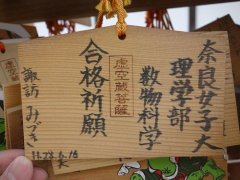 奈良女子大
理学部
数物科学
虚空蔵菩薩
合格祈願
諏訪 みづき
H28.6.16